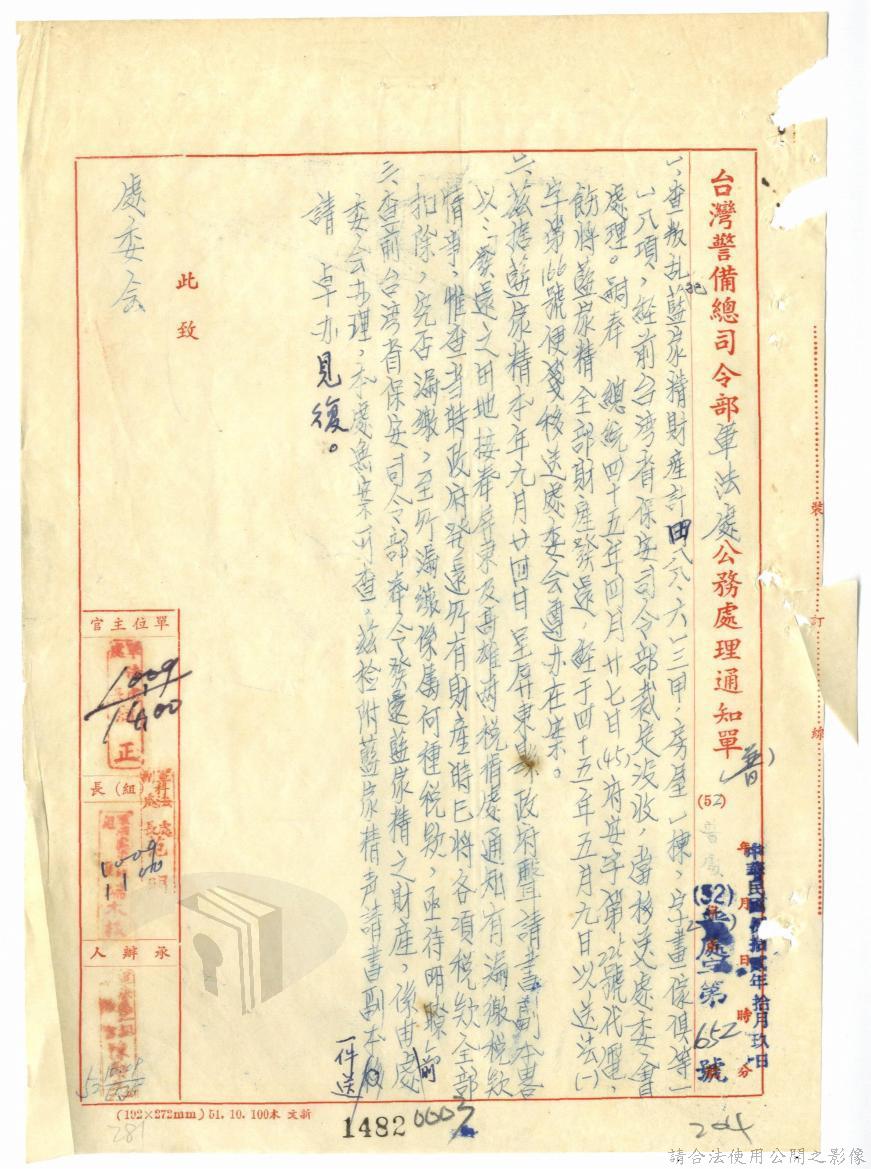 台灣警備總司令部軍法處公務處理通知單
(普)
(52)
年月日時分
中華民國伍拾貳年拾月玖日
(52)
處
第652號
一、查叛乱犯藍家精財產計田八八・六一三甲,房屋一棟,字畫傢俱等一
一八項,經前台湾省保安司令部裁定沒收,並移送處委會
處理。嗣奉 總統四十五年四月廿七日(45)府安字第號代電,
飭將藍家精全部財產發還,經于四十五年五月九日以送法(一)
字第166號便箋移送處委會遵办在案。
二、茲據藍家精本年九月廿四日呈屏東縣政府聲請書副本畧
以:發還之田地接奉屏東及高雄兩稅捐處通知有漏繳稅款
情事,惟查当時政府發還所有財產時已將各項稅款全部
扣除,究否漏繳,至所漏繳係屬何種稅款,亟待明瞭。
三、查前台湾省保安司令部奉令發還藍家精之財產,係由處
委会办理,本處無案可查。茲检附藍家精声請書副本一件送
請 卓办見復。
此致
處委会
單位主官
1009
1400
正
(組)長
1009
1100
承辦人
裝
訂
線
(192×272mm) 51. 10. 100本 文新
281
1482
0003
204
請合法使用公開之影像